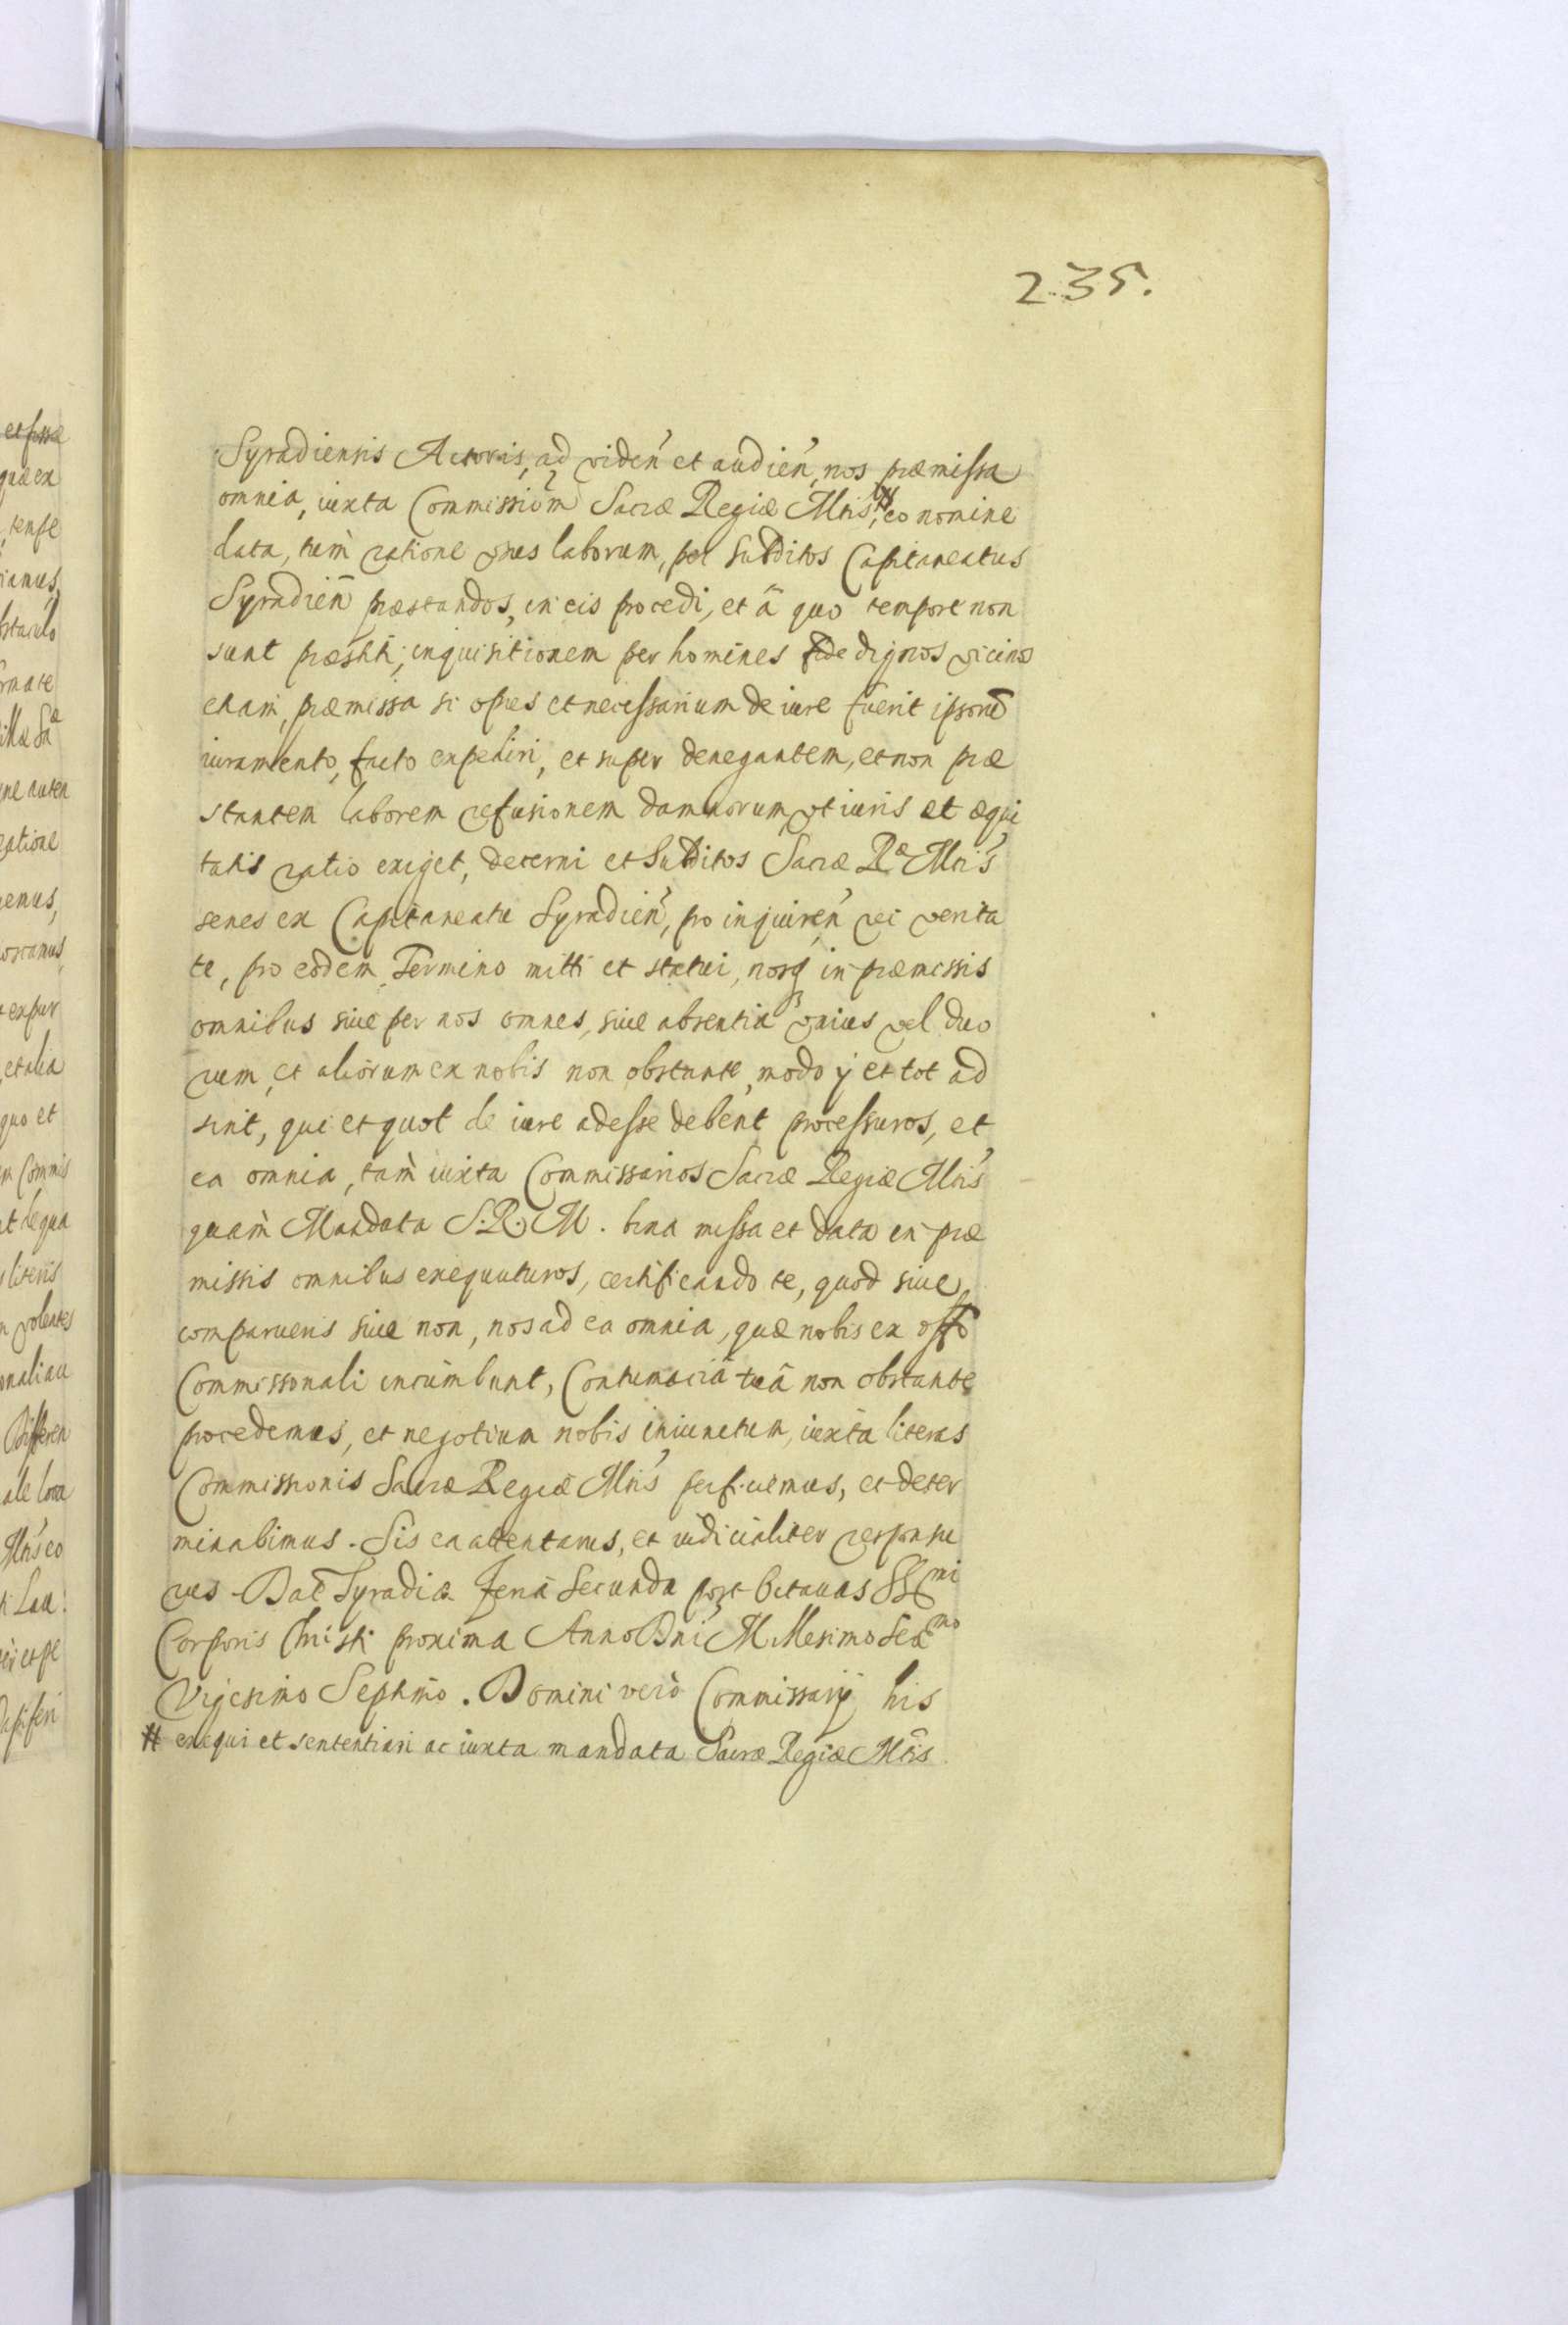 235.
Syradiensis Actoris, ad viden̄ et audien̄, nos præmissa
omnia, iuxta Commissiōm Sacræ Regiæ Mtis, # eo nomine
data, tum̀ ratione onus laborum, per subditos Capitaneatus
Syradien̄ præstandos, in eis procedi, et â quo tempore non
sunt præstiti, inquisitionem per homines fide dignos vicinos
etiam, præmissa si opus et necessarium de iure fuerit ipsorū
iuramento, facto expediri, et super denegantem, et non præ
stantem laborem refusionem damnorum, vt iuris et æqui
tatis ratio exiget, decerni et Subditos Sacræ Ræ Mtis
senes ex Capitaneatu Syradien̄, pro inquiren̄ rei verita
te, pro eodem Termino mitti et statui, nosq in præmissis
omnibus siue per nos omnes, siue absentia vnius vel duo
rum, et aliorum ex nobis non obstante, modo ÿ et tot ad
sint, qui et quot de iure adesse debent processuros, et
ea omnia, tam̀ iuxta Commissarios Sacræ Regiæ Mtis
quam̀ Mandata S. R. M. bina missa et data in præ
missis omnibus exequuturos, certificando te, quod siue
comparueris siue non, nos ad ea omnia, quæ nobis ex offo
Commissonali incumbunt, Contumaciâ tuâ non obstante
procedemus, et negotium nobis iniunctum, iuxta literas
Commissionis Sacræ Regiæ Mtis perficiemus, et deter
minabimus. Sis ea attentarus, et iudicialiter responsu
rus. Dat̄ Syradiæ. Feriā Secunda post Octauas SSmi
Corporis Christi proxima Anno Dnī Millesimo Sexmo
Vigesimo Septimo. Domini verò Commissarÿ his
# exequi et sententiari ac iuxta mandata Sacræ Regiæ Mtis